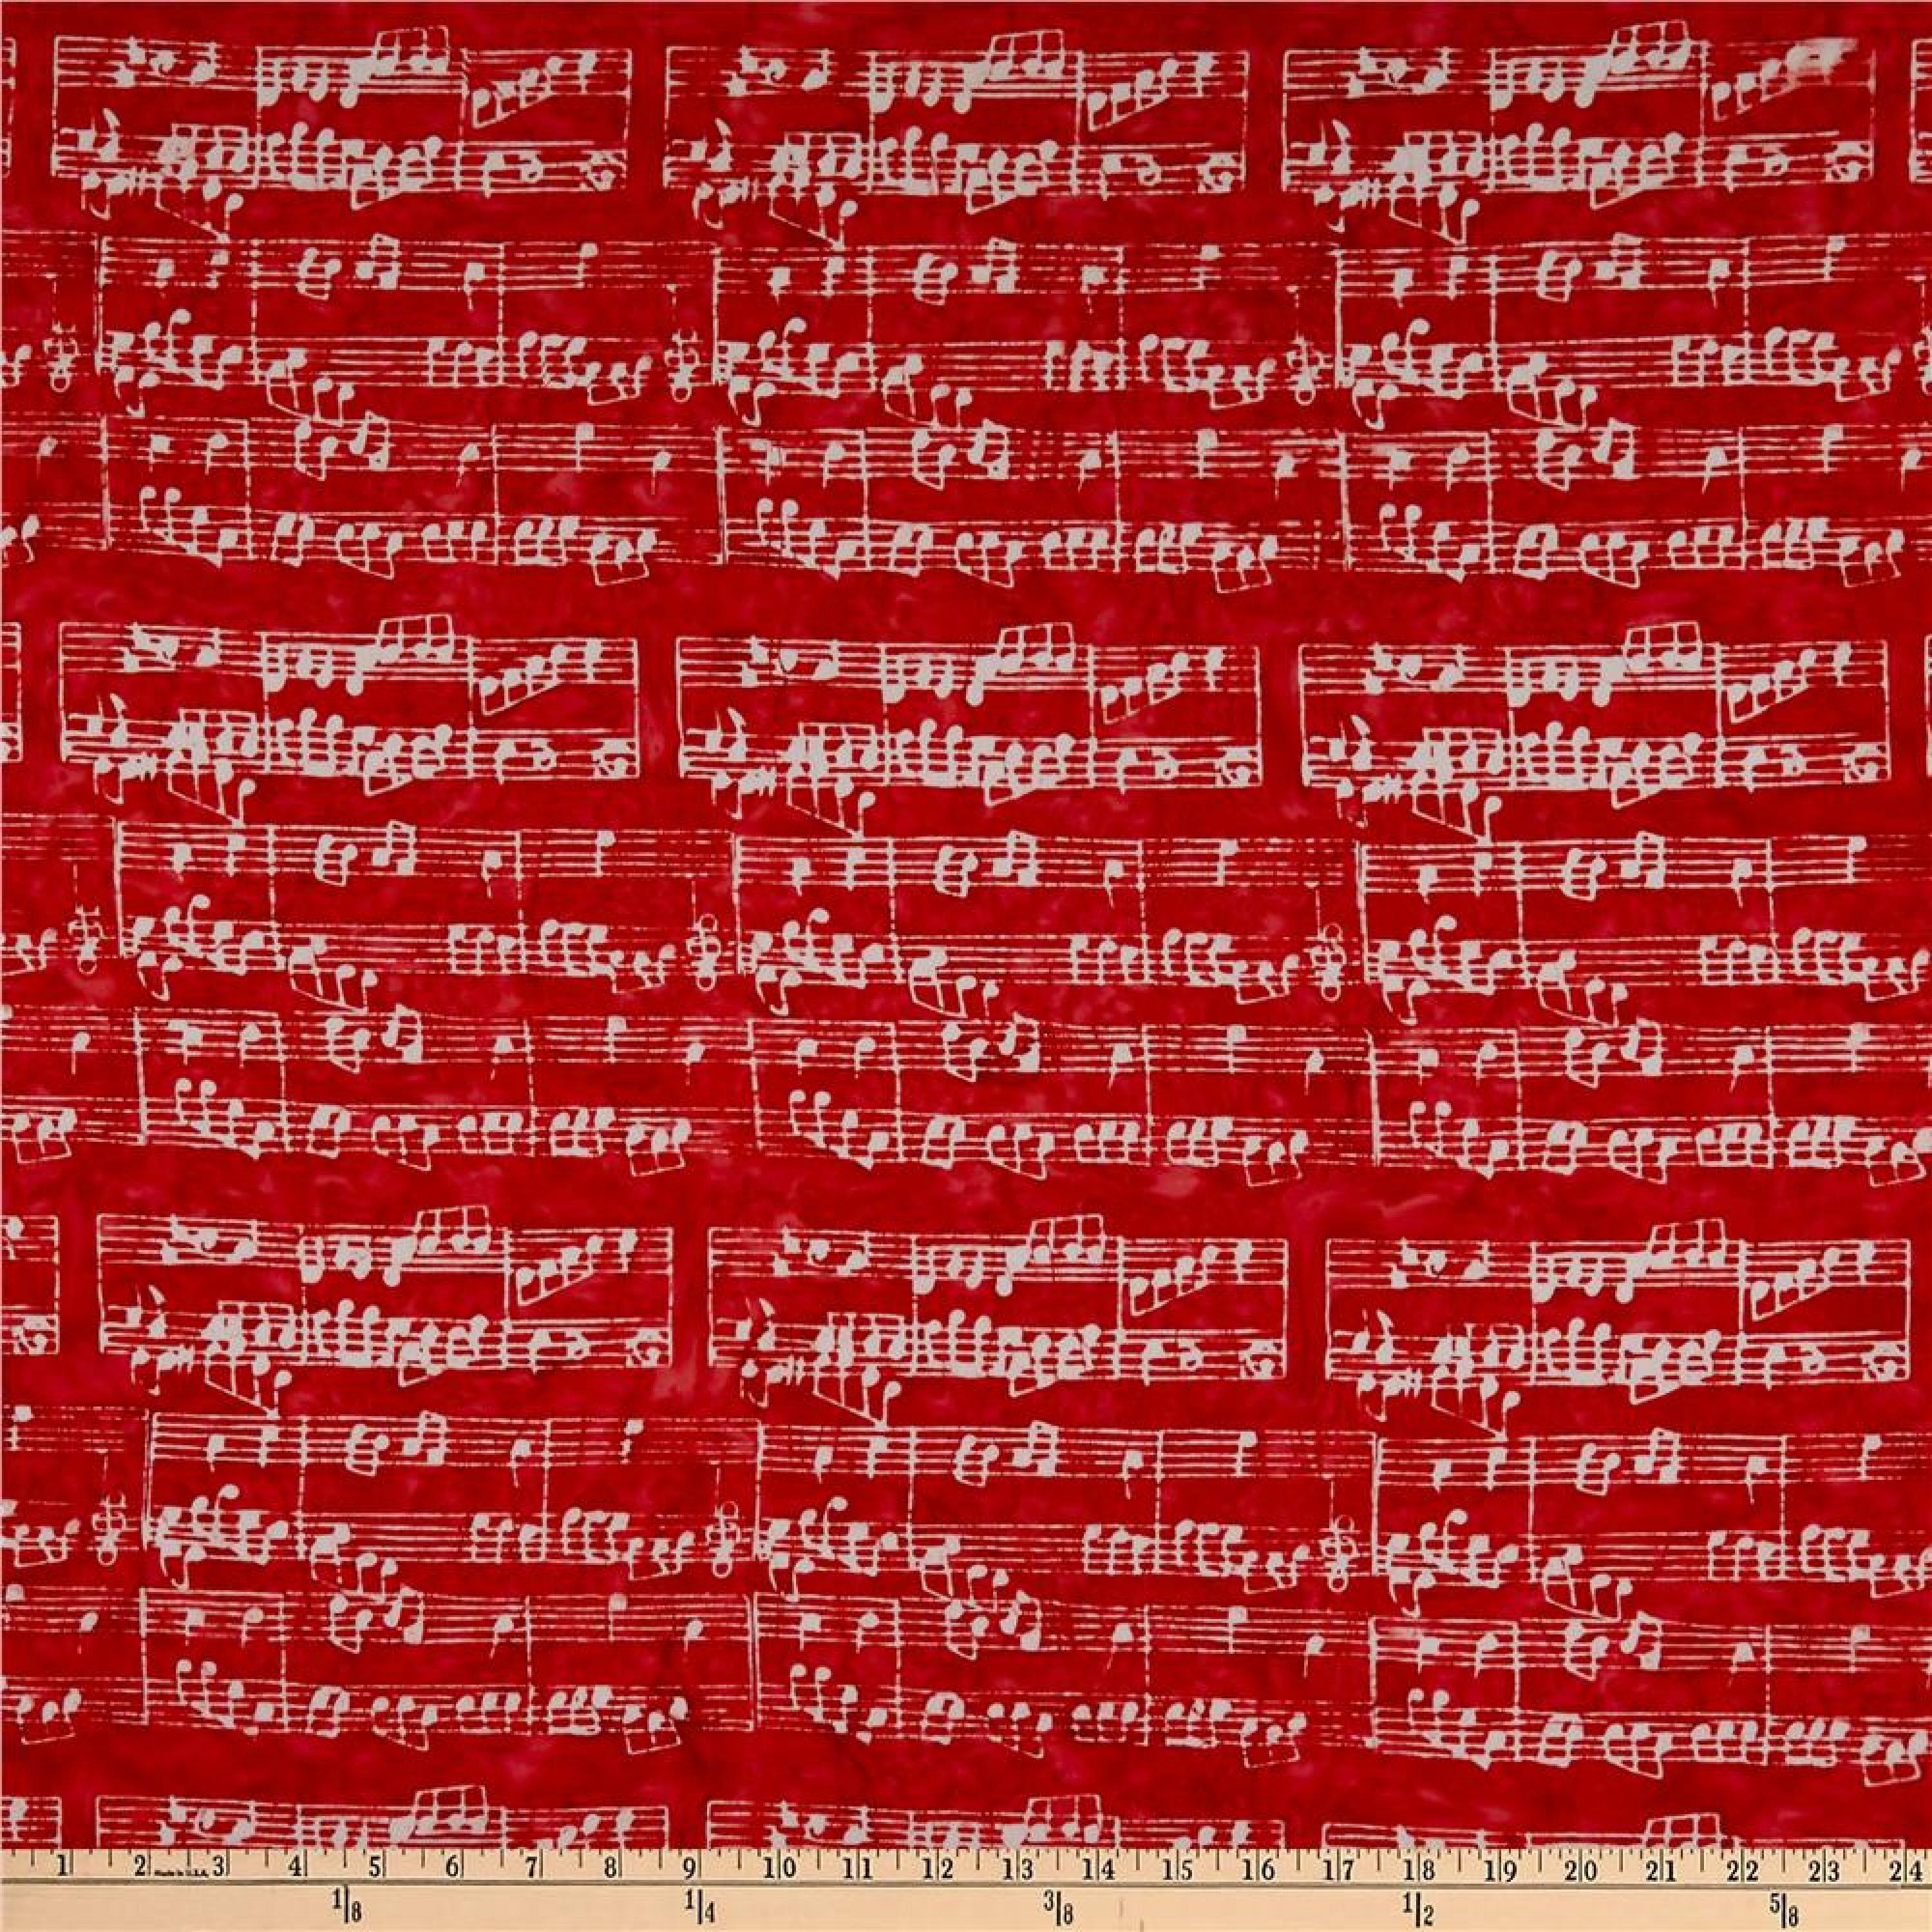 1 2 Made in U.S.A. 3 4 5 6 7 8 9 10 11 12 13 14 15 16 17 18 19 20 21 22 23 24
1|8 1|4 3|8 1|2 5|8